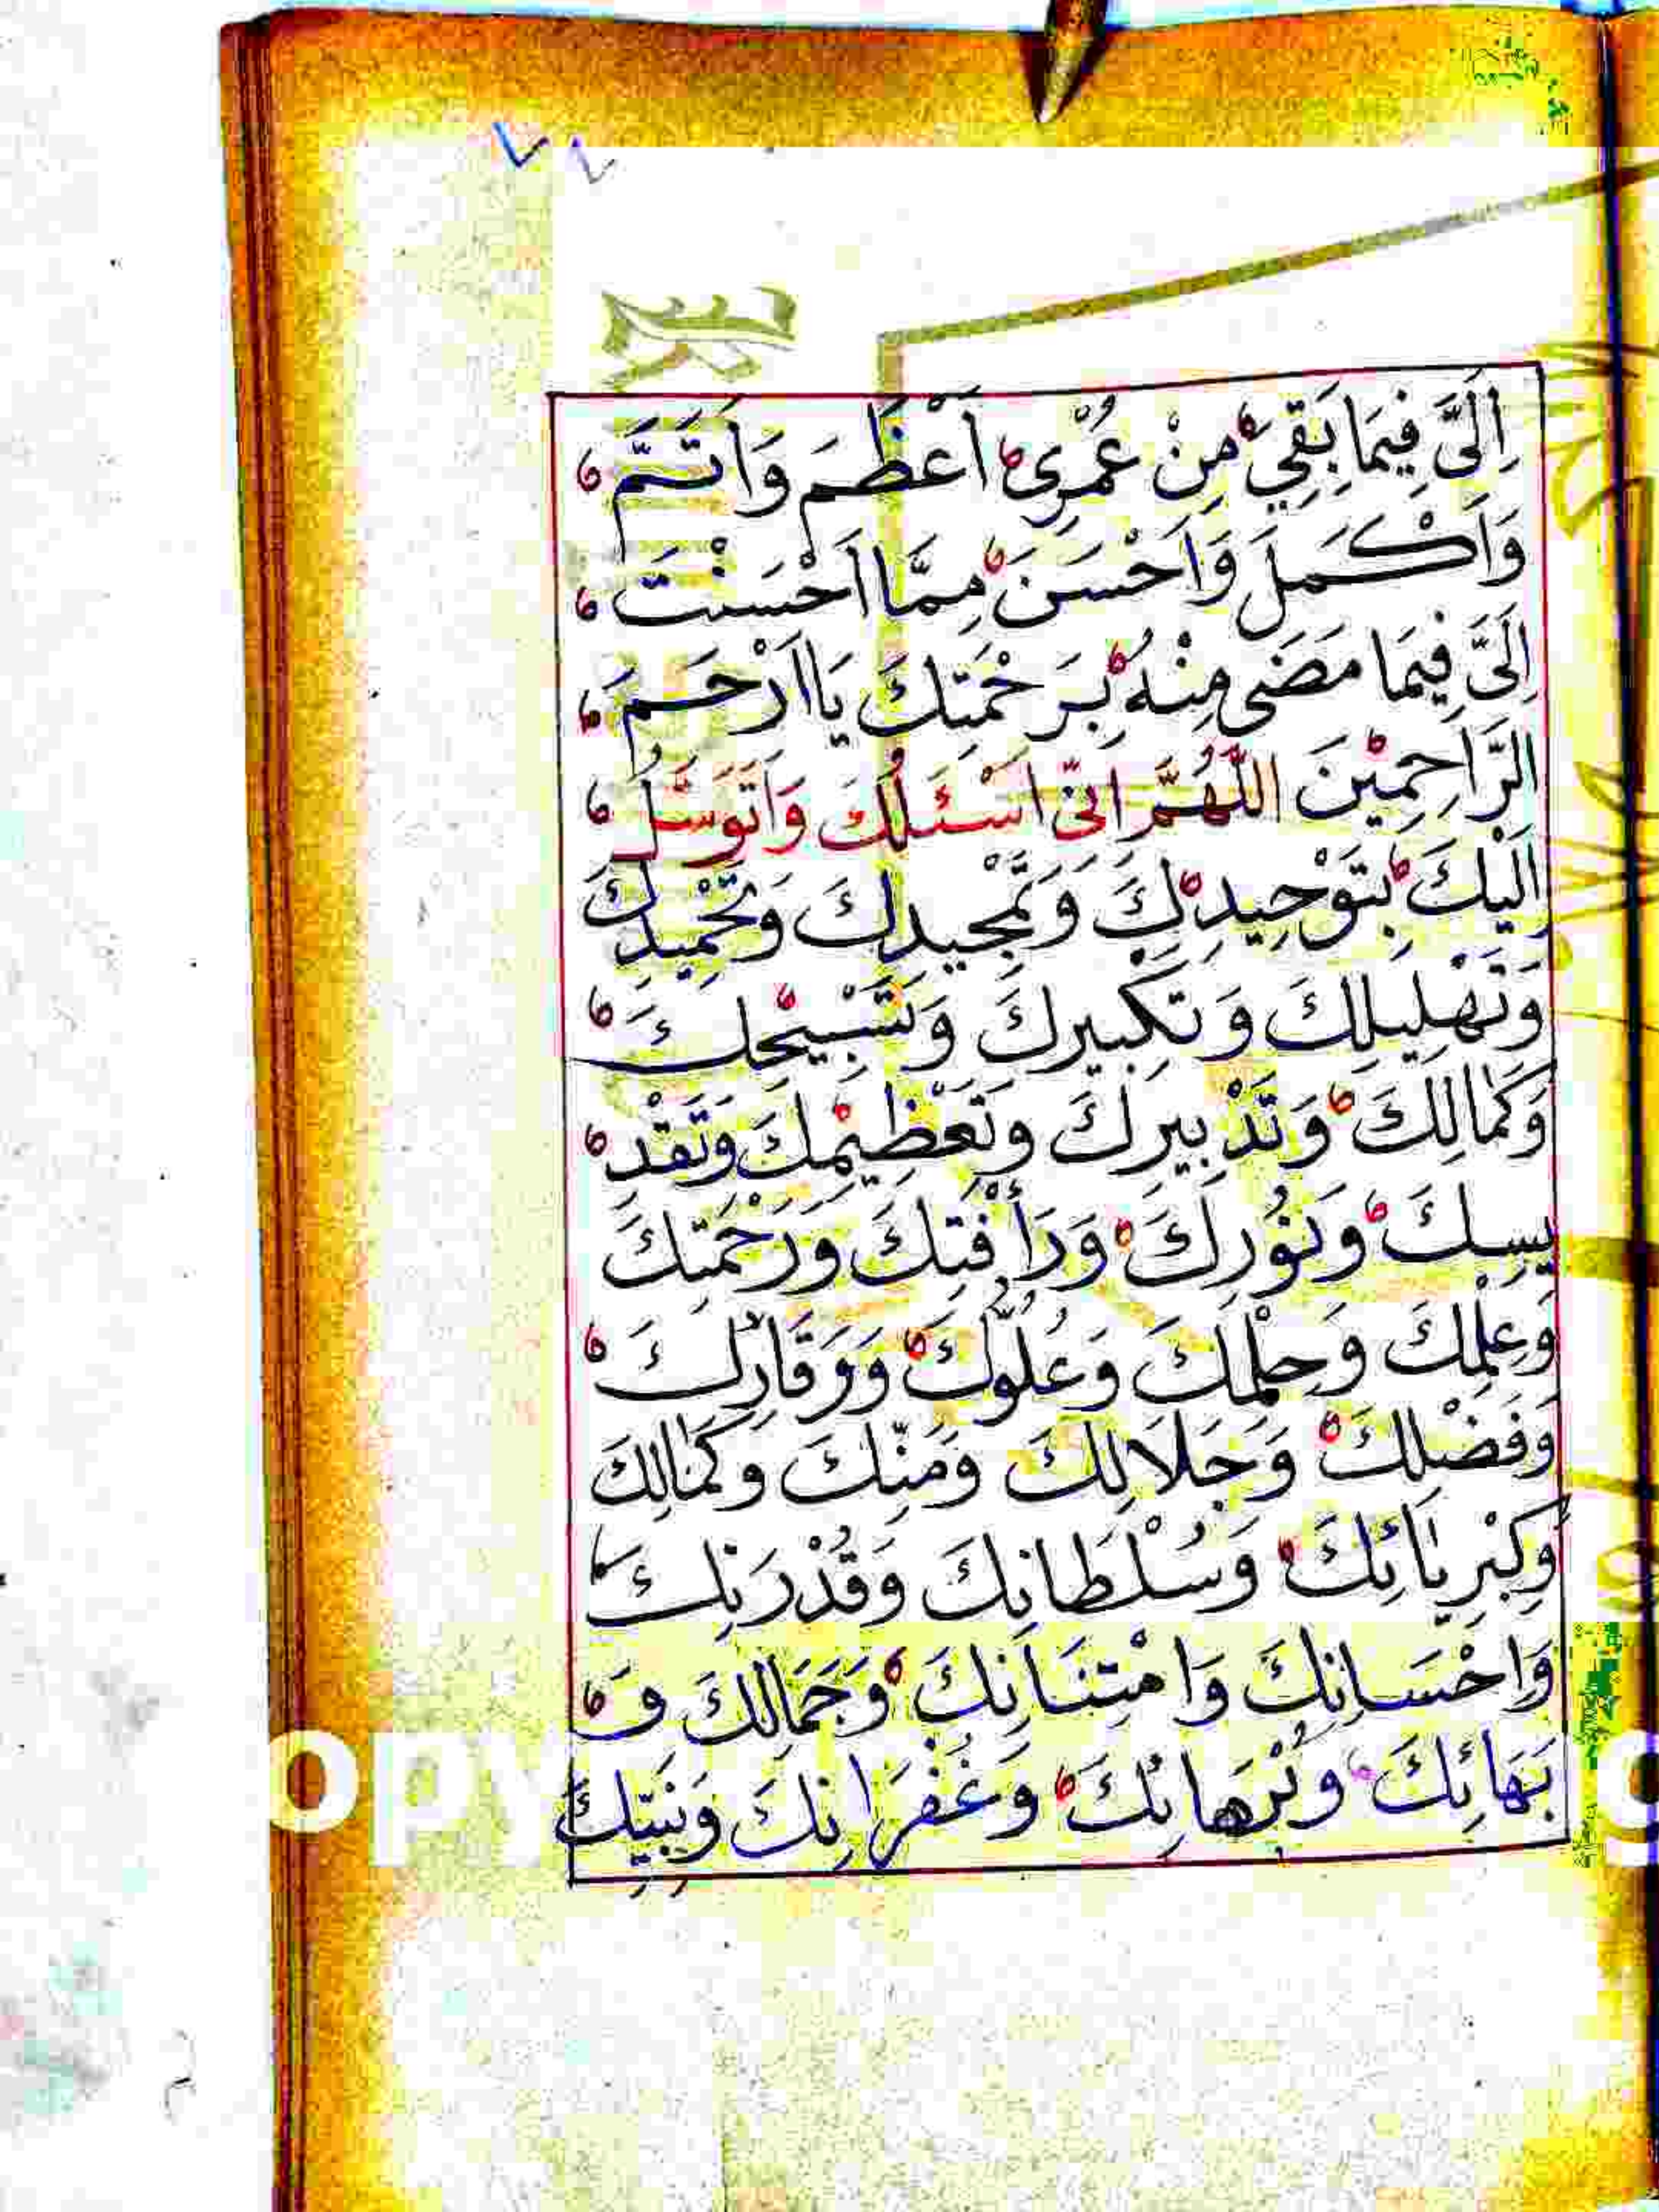 ٧٧
اِلَىَّ فِيمَا بَقِيَ مِنْ عُمْرِى اَعْظَمَ وَاَتَمَّ
وَاَكْمَلَ وَاَحْسَنَ مِمَّا اَحْسَنْتَ
اِلَىَّ فِيمَا مَضَى مِنْهُ بِرَحْمَتِكَ يَا اَرْحَمَ
الرَّاحِمِيْنَ اللّٰهُمَّ اِنِّى اَسْئَلُكَ وَاَتَوَسَّلُ
اِلَيْكَ بِتَوْحِيدِكَ وَتَمْجِيدِكَ وَتَحْمِيدِكَ
وَتَهْلِيلِكَ وَتَكْبِيرِكَ وَتَسْبِيْحِكَ
وَكَمَالِكَ وَتَدْبِيرِكَ وَتَعْظِيْمِكَ وَتَقْدِ
يسِكَ وَنُوْرِكَ وَرَأْفَتِكَ وَرَحْمَتِكَ
وَعِلْمِكَ وَحِلْمِكَ وَعُلُوِّكَ وَوَقَارِكَ
وَفَضْلِكَ وَجَلَالِكَ وَمَنِّكَ وَكَمَالِكَ
وَكِبْرِيَائِكَ وَسُلْطَانِكَ وَقُدْرَتِكَ
وَاِحْسَانِكَ وَامْتِنَانِكَ وَجَمَالِكَ وَ
بَهَائِكَ وَبُرْهَانِكَ وَغُفْرَانِكَ وَنَبِيِّكَ
opy